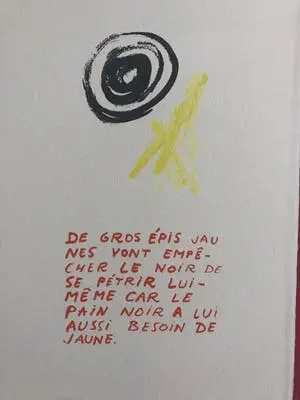 DE GROS ÉPIS JAU
NES VONT EMPÊ-
CHER LE NOIR DE
SE PÉTRIR LUI-
MÊME CAR LE
PAIN NOIR A LUI
AUSSI BESOIN DE
JAUNE.